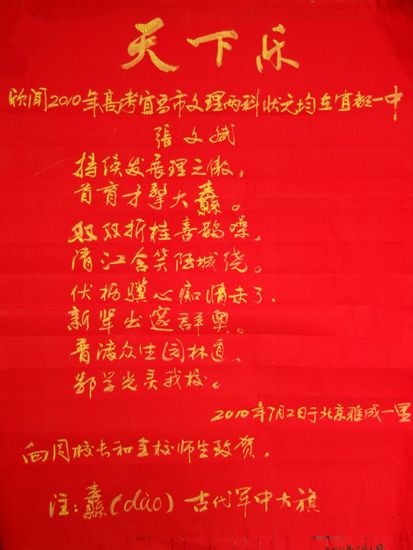 天下乐
欣闻2010年高考宜昌市文理两科状元均在宜都一中
張文斌
持续发展理之傲，
首育才擎大纛。
双双折桂喜鹊噪，
清江含笑陆城绕。
伏枥骥心痴情未了，
新辈出邃群奥。
普渡众生园林道，
郭学光灵我校。
2010年7月2日于北京雅成一里
向闫校长和全校师生致贺。
注：纛(dào)古代军中大旗